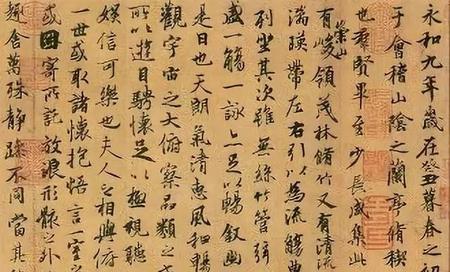 永和九年歲在癸丑暮春之初
于會稽山陰之蘭亭脩稧
也群賢畢至少長咸集此
有崇山峻領茂林脩竹又有清流
湍暎帶左右引以為流觴曲
列坐其次雖無絲竹管弦
盛一觴一詠亦足以暢敘幽
是日也天朗氣清惠風和暢
觀宇宙之大俯察品類之
所以遊目騁懷足以極視聽
娛信可樂也夫人之相與俯
一世或取諸懷抱悟言一室之
或因寄所託放浪形骸之外
趣舍萬殊靜躁不同當其